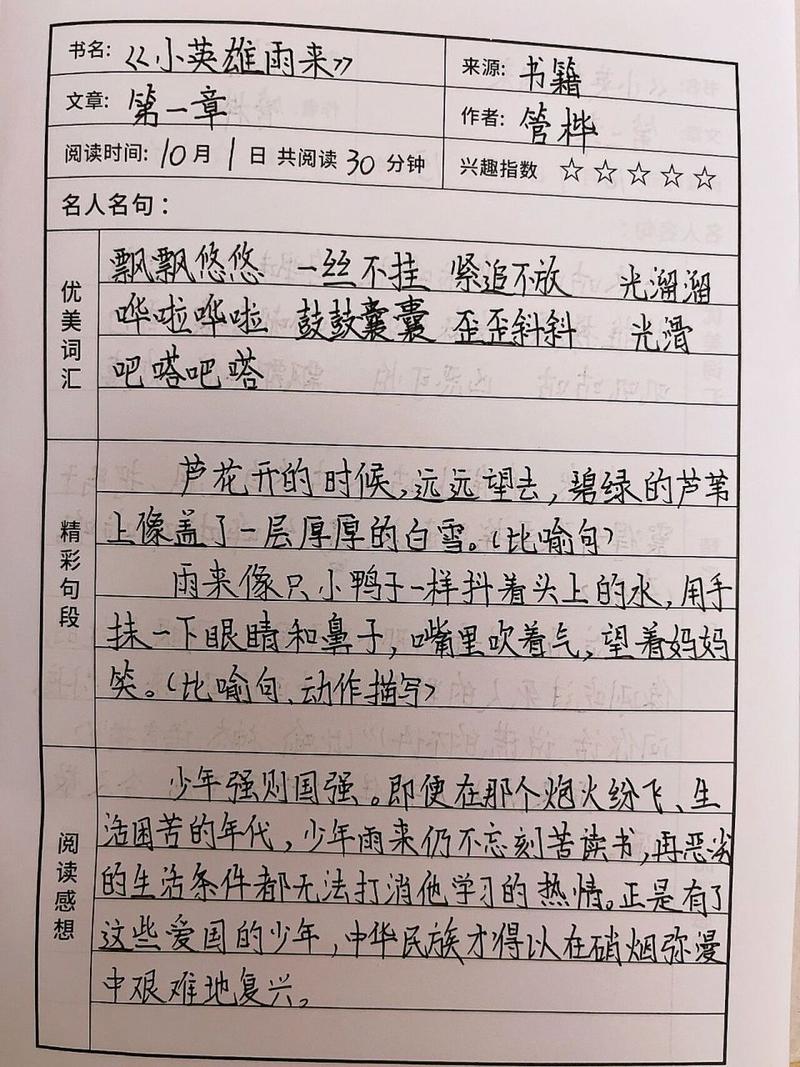 书名：《小英雄雨来》 来源：书籍
文章：第一章 作者：管桦
阅读时间：10月1日 共阅读30分钟 兴趣指数 ☆☆☆☆☆
名人名句：
优美词汇
飘飘悠悠 一丝不挂 紧追不放 光溜溜
哗啦哗啦 鼓鼓囊囊 歪歪斜斜 光滑
吧嗒吧嗒
精彩句段
芦花开的时候，远远望去，碧绿的芦苇
上像盖了一层厚厚的白雪。（比喻句）
雨来像只小鸭子一样抖着头上的水，用手
抹一下眼睛和鼻子，嘴里吹着气，望着妈妈
笑。（比喻句、动作描写）
阅读感想
少年强则国强。即使在那个炮火纷飞、生
活困苦的年代，少年雨来仍不忘刻苦读书，再恶劣
的生活条件都无法打消他学习的热情。正是有了
这些爱国的少年，中华民族才得以在硝烟弥漫
中艰难地复兴。